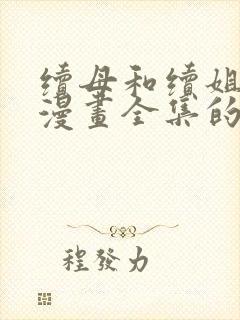 續母和續姐
漫畫全集的
程發力